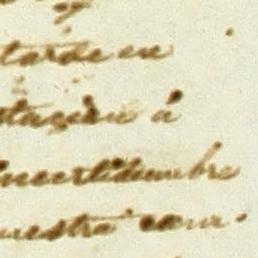 tarde en
tacion á
incertidumbre
uestra